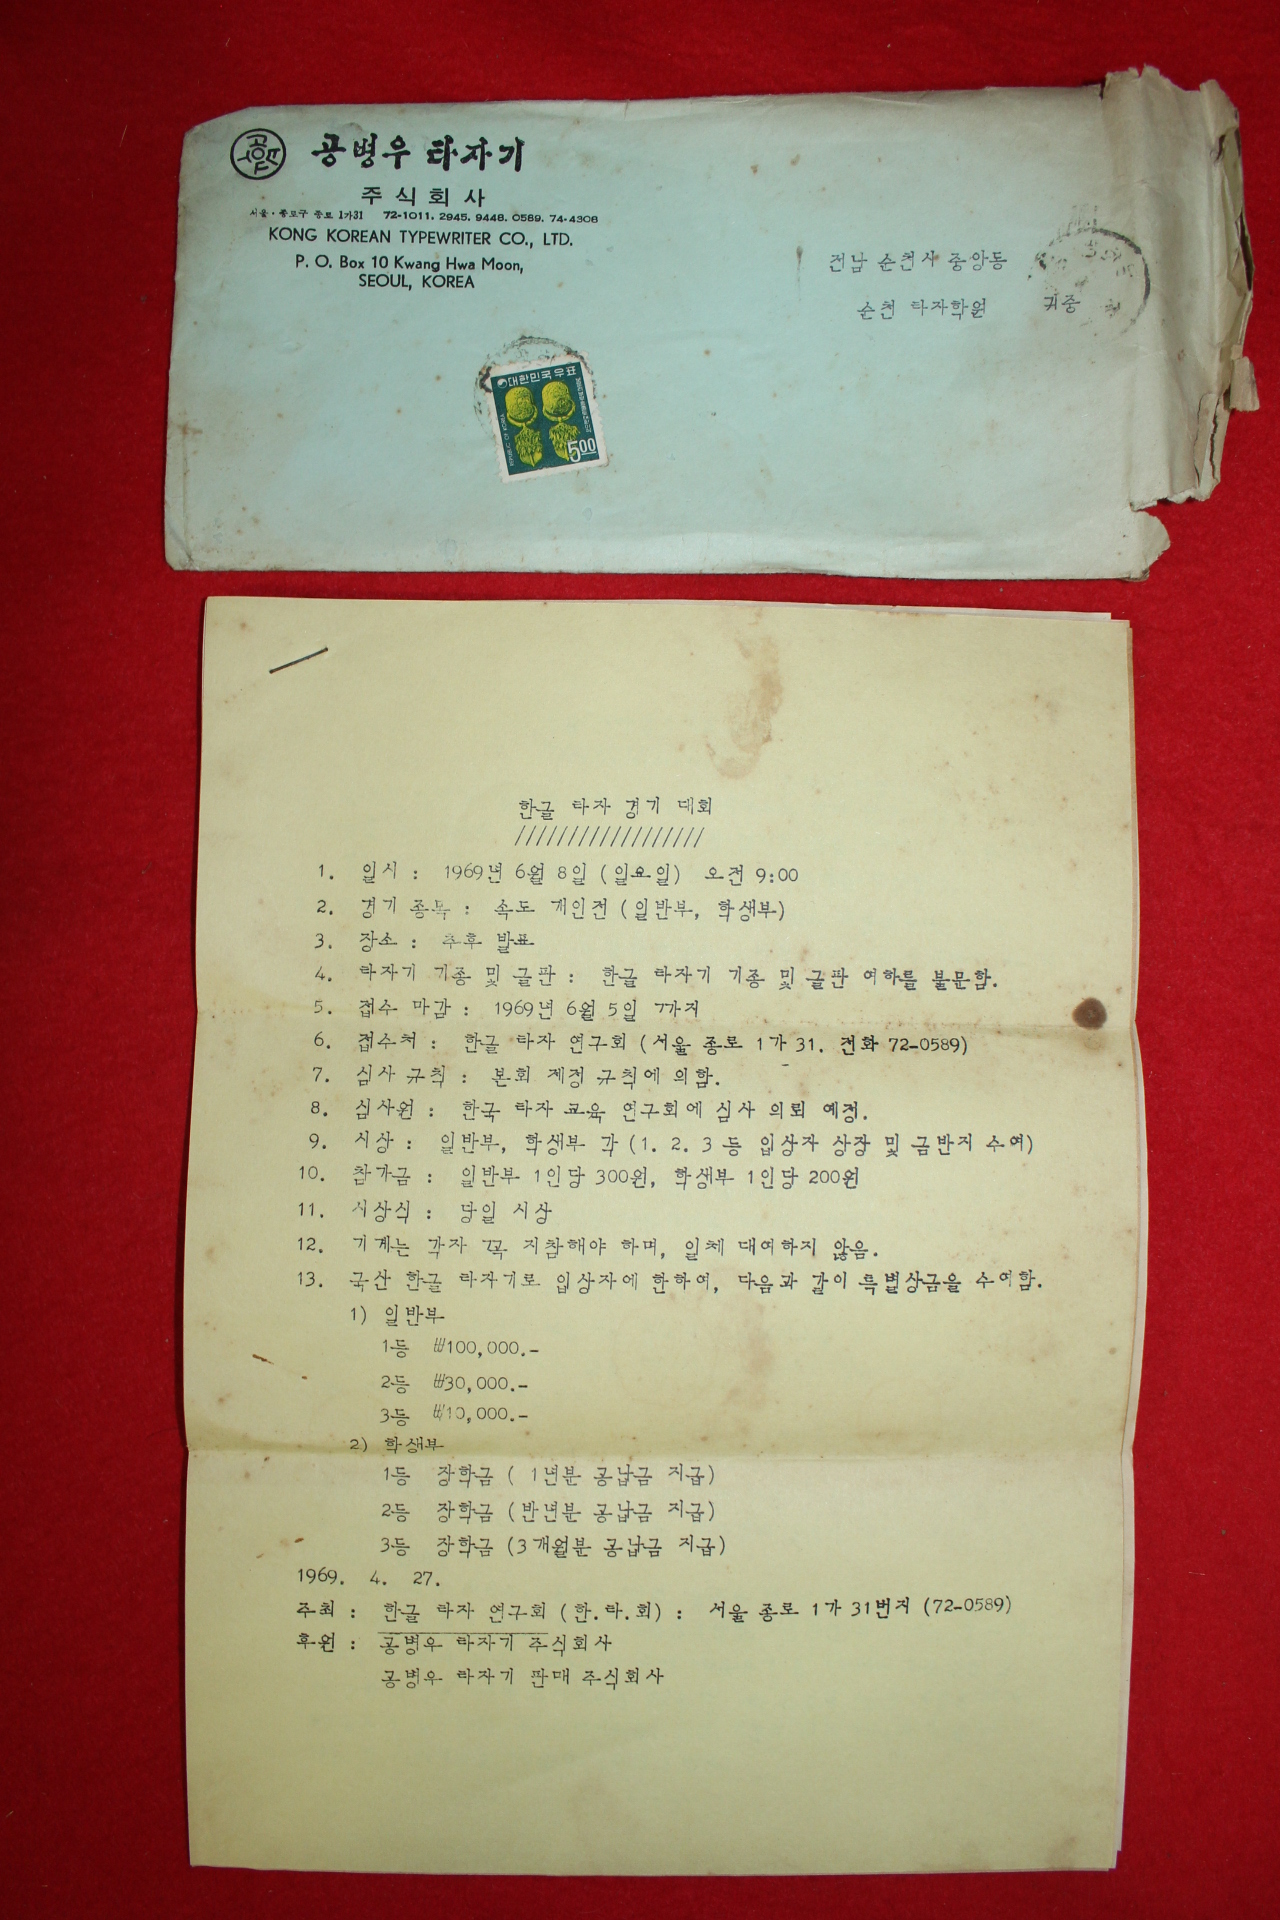 공병우 타자기
주식회사
서울·종로구 종로 1가31 72-1011. 2945. 9448. 0589. 74-4308
KONG KOREAN TYPEWRITER CO., LTD.
P. O. Box 10 Kwang Hwa Moon,
SEOUL, KOREA
전남 순천시 중앙동
순천 타자학원 귀중
대한민국우표
REPUBLIC OF KOREA
5.00
한글 타자 경기 대회
//////////////////
1. 일시 : 1969년 6월 8일 (일요일) 오전 9:00
2. 경기 종목 : 속도 개인전 (일반부, 학생부)
3. 장소 : 추후 발표
4. 타자기 기종 및 글판 : 한글 타자기 기종 및 글판 여하를 불문함.
5. 접수 마감 : 1969년 6월 5일 까지
6. 접수처 : 한글 타자 연구회 (서울 종로 1가 31. 전화 72-0589)
7. 심사 규칙 : 본회 제정 규칙에 의함.
8. 심사원 : 한국 타자 교육 연구회에 심사 의뢰 예정.
9. 시상 : 일반부, 학생부 각 (1. 2. 3 등 입상자 상장 및 금반지 수여)
10. 참가금 : 일반부 1인당 300원, 학생부 1인당 200원
11. 시상식 : 당일 시상
12. 기계는 각자 꼭 지참해야 하며, 일체 대여하지 않음.
13. 국산 한글 타자기로 입상자에 한하여, 다음과 같이 특별상금을 수여함.
1) 일반부
1등 ₩100,000.-
2등 ₩30,000.-
3등 ₩10,000.-
2) 학생부
1등 장학금 ( 1년분 공납금 지급)
2등 장학금 (반년분 공납금 지급)
3등 장학금 (3개월분 공납금 지급)
1969. 4. 27.
주최 : 한글 타자 연구회 (한.타.회) : 서울 종로 1가 31번지 (72-0589)
후원 : 공병우 타자기 주식회사
공병우 타자기 판매 주식회사